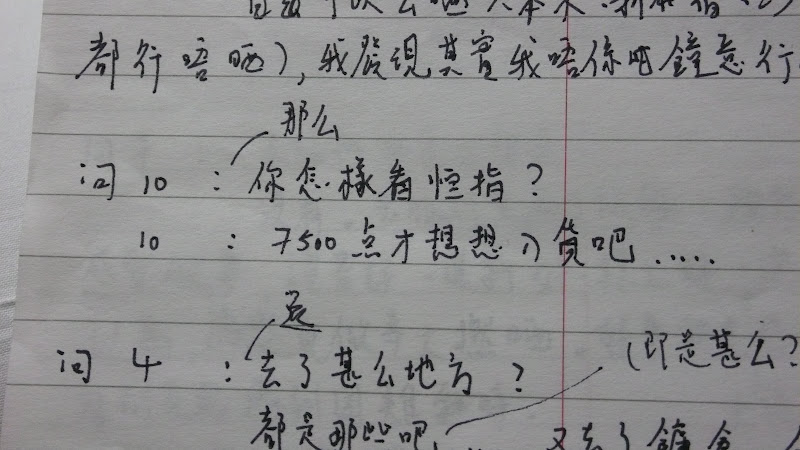 都行唔晒), 我發現其實我唔係咁鐘意行
那么
问 10 : 你怎樣看恒指?
10 : 7500 点才想想入货吧 .....
问 4 : 去了甚么地方 ?
(即是甚么?
都是那些吧, 又去了